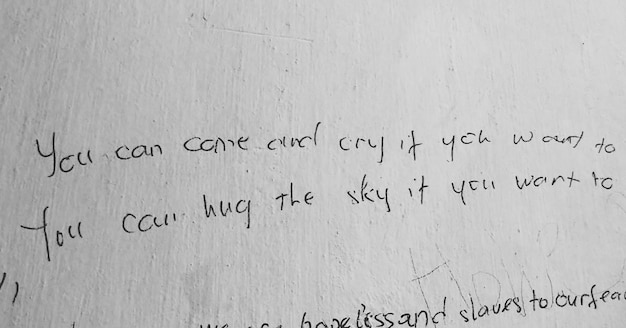 You can come and cry if you want to
You can hug the sky if you want to
hopeless and slaves to our fea